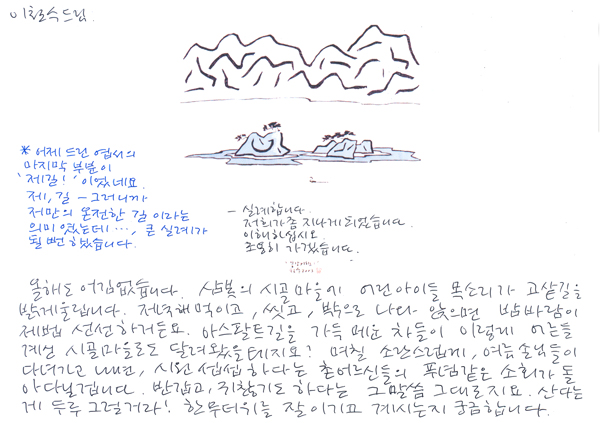 이철수드림.
* 어제 드린 엽서의
마지막 부분이
'제길!' 이었네요.
제, 길 – 그러니까
저만의 온전한 길 이라는
의미였는데…, 큰 실례가
될 뻔 했습니다.
– 실례합니다.
저희가 좀 지나게 되었습니다.
이해하십시오.
조용히 가겠습니다.
올해도 어김없습니다. 삼복의 시골마을에 어린아이들 목소리가 고샅길을
밝게 울립니다. 저녁해먹이고, 씻고, 밖으로 나와 앉으면 밤바람이
제법 선선하거든요. 아스팔트길을 가득 메운 차들이 이렇게 어느들
계셨 시골마을로도 달려왔을테지요? 며칠 소란스럽게, 여름손님들이
다녀가고 나면, 시원섭섭하다는 촌어르신들의 푸념같은 소회가 돌
아다닐겁니다. 반갑고, 귀찮기도 하다는 그말씀 그대로지요. 산다는
게 두루 그럴거라! 한무더위를 잘 이기고 계시는지 궁금합니다.